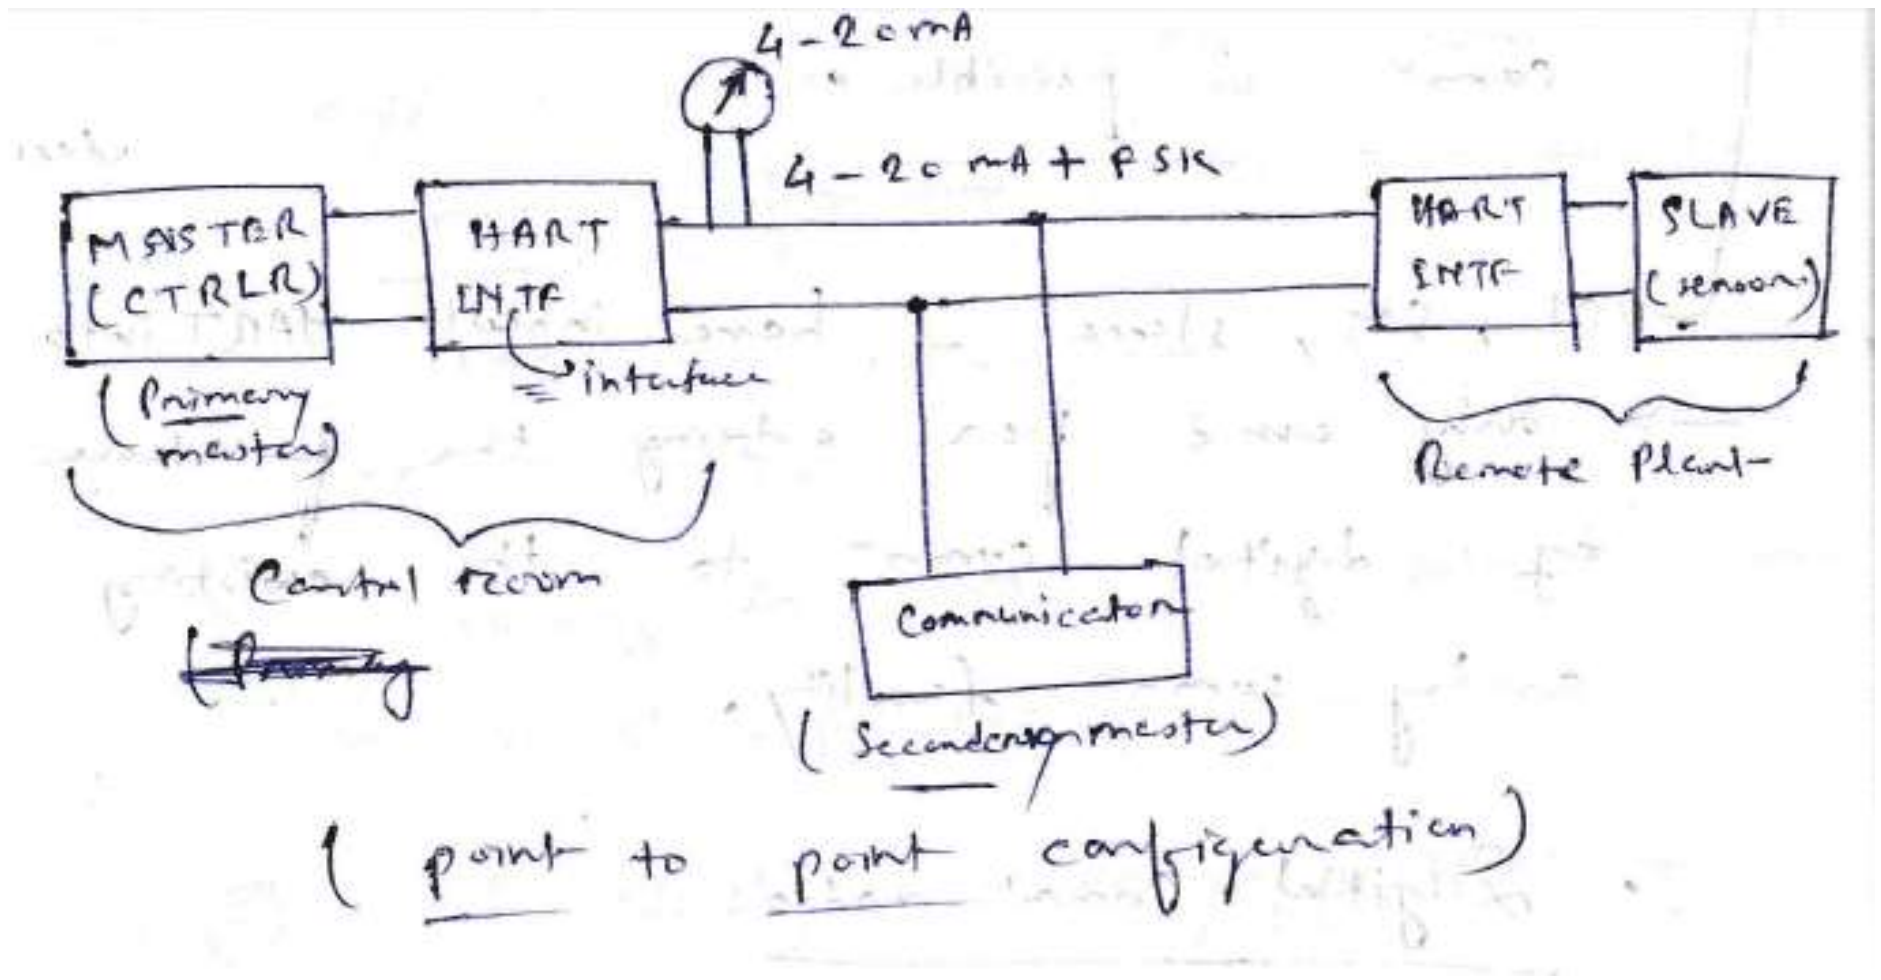 4-20mA
4-20 mA + FSK
MASTER
(CTRLR)
(Primary
master)
HART
INTF
interface
HART
INTF
SLAVE
(sensor)
Remote Plant
Control room
(Primary
Communicator
(Secondary master)
(point to point configuration)